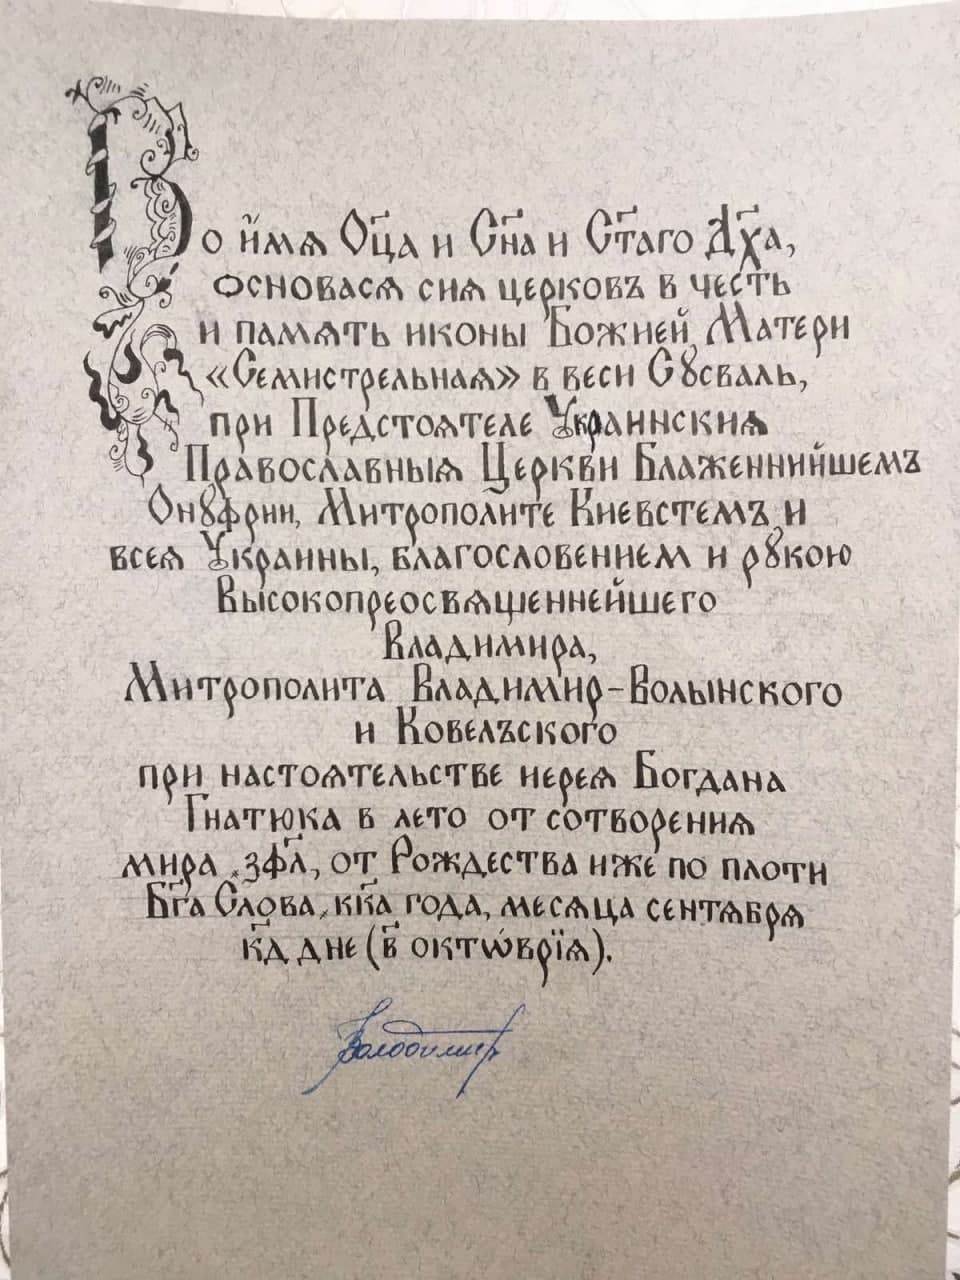 Во имя Оца и Сна и Стаго Дха,
основася сия церковъ в честь
и память иконы Божией Матери
«Семистрельная» в веси Сꙋсваль,
при Предстоятеле Украинския
Православныя Церкви Блаженнийшемъ
Онꙋфрии, Митрополите Киевстемъ и
всея Украины, благословением и рꙋкою
Высокопреосвященнейшего
Владимира,
Митрополита Владимир-Волынского
и Ковелъского
при настоятельстве иерея Богдана
Гнатюка в лето от сотворения
мира ҂зфл҃, от Рождества иже по плоти
Бг҃а Слова ҂кк҃а года, месяца сентября
кд҃ дне (в҃ октѡврїя).
Володимир